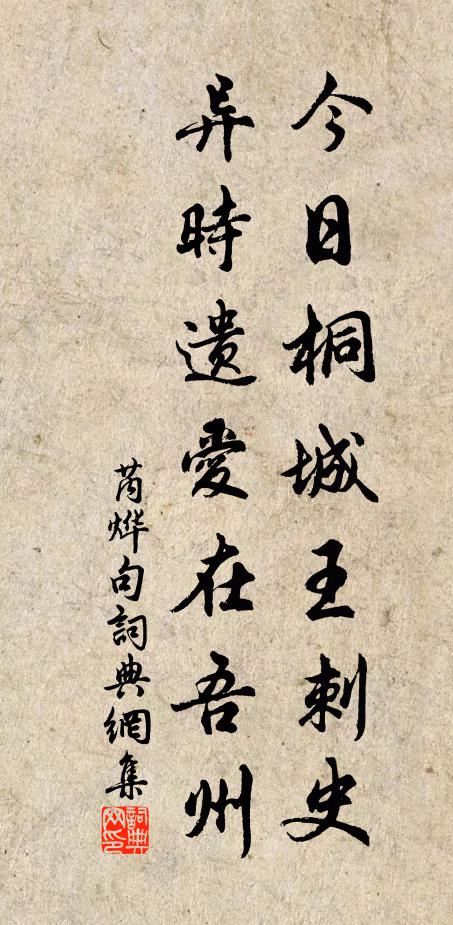 今日桐城王刺史
异時遗愛在吾州
芮烨句詞典網集
詞典网印